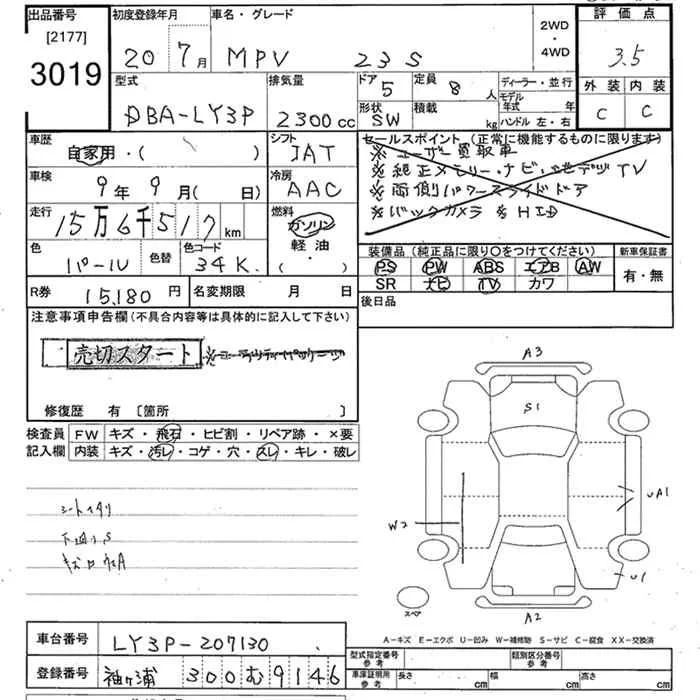 出品番号
[2177]
3019
初度登録年月
20 7月
車名・グレード
MPV 23S
2WD
・
4WD
評価点
3.5
外装 内装
C C
型式
DBA-LY3P
排気量
2300cc
ドア 5
形状 SW
定員 8人
積載 kg
ディーラー・並行
モデル年式 年
ハンドル 左・右
車歴
自家用・( )
シフト
IAT
車検
9年9月( 日)
冷房
AAC
走行
15万6千517km
燃料
ガソリン
軽油
( ・ )
色
パール
色替
色コード
34K
セールスポイント(正常に機能するものに限ります)
※ユーザー買取車
※純正メモリーナビ・地デジTV
※両側パワースライドドア
※バックカメラ※HID
装備品(純正品に限り○をつけてください)
新車保証書
PS PW ABS エアB AW
SR ナビ TV カワ
有・無
R券 15,180円
名変期限 月 日
後日品
注意事項申告欄(不具合内容等は具体的に記入して下さい)
売切スタート
修復歴 有 [箇所 ]
検査員 FW キズ・飛石・ヒビ割・リペア跡・×要
記入欄 内装 キズ・汚レ・コゲ・穴・スレ・キレ・破レ
下廻りS
A3
S1
W2
UA1
U1
スペア
A2
A-キズ E-エクボ U-凹み W-補修跡 S-サビ C-腐食 XX-交換済
車台番号 LY3P-207130
登録番号 袖ヶ浦 300む9146
型式指定番号 参考
類別区分番号 参考
車庫証明用 参考 長さ cm 幅 cm 高さ cm